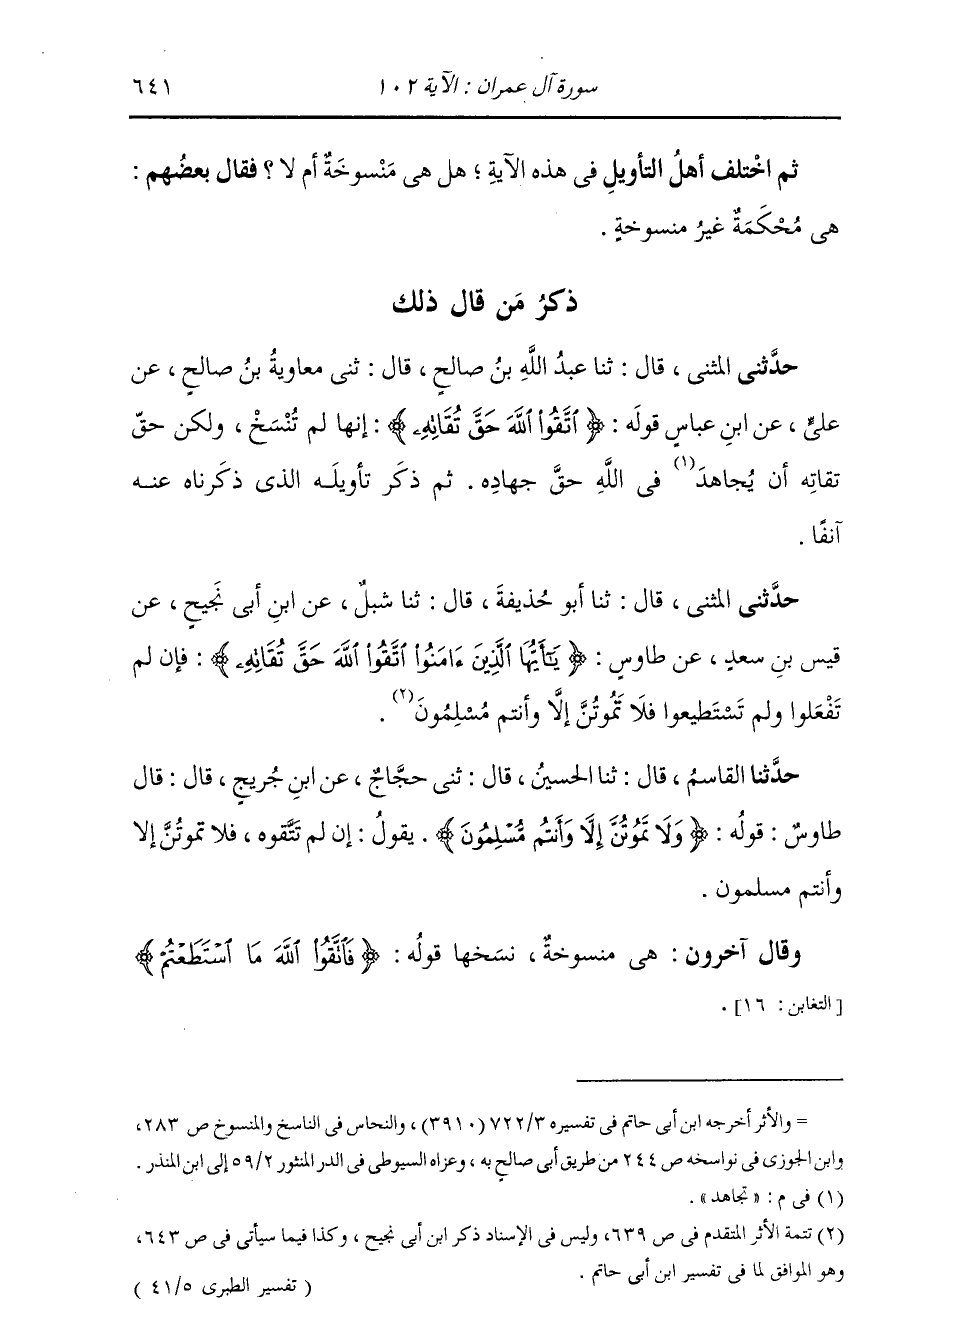 سورة آل عمران : الآية ١٠٢ ٦٤١
ثم اخْتلف أهلُ التأويلِ فى هذه الآيةِ ؛ هل هى مَنْسوخَةٌ أم لا ؟ فقال بعضُهم :
هى مُحْكَمَةٌ غيرُ منسوخةٍ .
ذكرُ مَن قال ذلك
حدَّثنى المثنى ، قال : ثنا عبدُ اللَّهِ بنُ صالحٍ ، قال : ثنى معاويةُ بنُ صالحٍ ، عن
علىٍّ ، عن ابنِ عباسٍ قولَه : ﴿ ٱتَّقُوا۟ ٱللَّهَ حَقَّ تُقَاتِهِۦ ﴾ : إنها لم تُنْسَخْ ، ولكن حقّ
تقاتِه أن يُجاهدَ(١) فى اللَّهِ حقَّ جهادِه . ثم ذكَر تأويلَه الذى ذكَرناه عنه
آنفًا .
حدَّثنى المثنى ، قال : ثنا أبو حُذيفةَ ، قال : ثنا شبلٌ ، عن ابنِ أبى نَجيحٍ ، عن
قيسِ بنِ سعدٍ ، عن طاوسٍ : ﴿ يَـٰٓأَيُّهَا ٱلَّذِينَ ءَامَنُوا۟ ٱتَّقُوا۟ ٱللَّهَ حَقَّ تُقَاتِهِۦ ﴾ : فإن لم
تَفْعَلوا ولم تَسْتَطيعوا فلَا تَمُوتُنَّ إلَّا وأنتم مُسْلِمُونَ(٢) .
حدَّثنا القاسمُ ، قال : ثنا الحسينُ ، قال : ثنى حجَّاجٌ ، عن ابنِ جُريجٍ ، قال : قال
طاوسٌ : قولُه : ﴿ وَلَا تَمُوتُنَّ إِلَّا وَأَنتُم مُّسْلِمُونَ ﴾ . يقولُ : إن لم تَتَّقوه ، فلا تموتُنَّ إلا
وأنتم مسلمون .
وقال آخرون : هى منسوخةٌ ، نسَخها قولُه : ﴿ فَٱتَّقُوا۟ ٱللَّهَ مَا ٱسْتَطَعْتُمْ ﴾
[ التغابن : ١٦] .
= والأثر أخرجه ابن أبى حاتم فى تفسيره ٧٢٢/٣ (٣٩١٠) ، والنحاس فى الناسخ والمنسوخ ص ٢٨٣ ،
وابن الجوزى فى نواسخه ص ٢٤٤ من طريق أبى صالح به ، وعزاه السيوطى فى الدر المنثور ٥٩/٢ إلى ابن المنذر .
(١) فى م : « تجاهد » .
(٢) تتمة الأثر المتقدم فى ص ٦٣٩، وليس فى الإسناد ذكر ابن أبى نجيح ، وكذا فيما سيأتى فى ص ٦٤٣ ،
وهو الموافق لما فى تفسير ابن أبى حاتم .
( تفسير الطبرى ٤١/٥ )